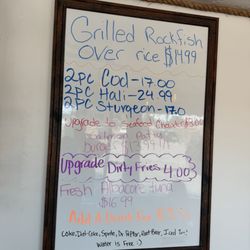 Grilled Rockfish
over rice $14.99
2pc Cod-17.00
2pc Hali-24.99
2pc Sturgeon-
Upgrade to Seafood Chowder
Salmon Patty
burger $13.99
Upgrade Dirty Fries 4.00
Fresh Albacore tuna
$16.99
Add A Drink For
Coke, Diet-Coke, Sprite, Dr. Pepper, Root Beer, Iced Tea
water is Free :)